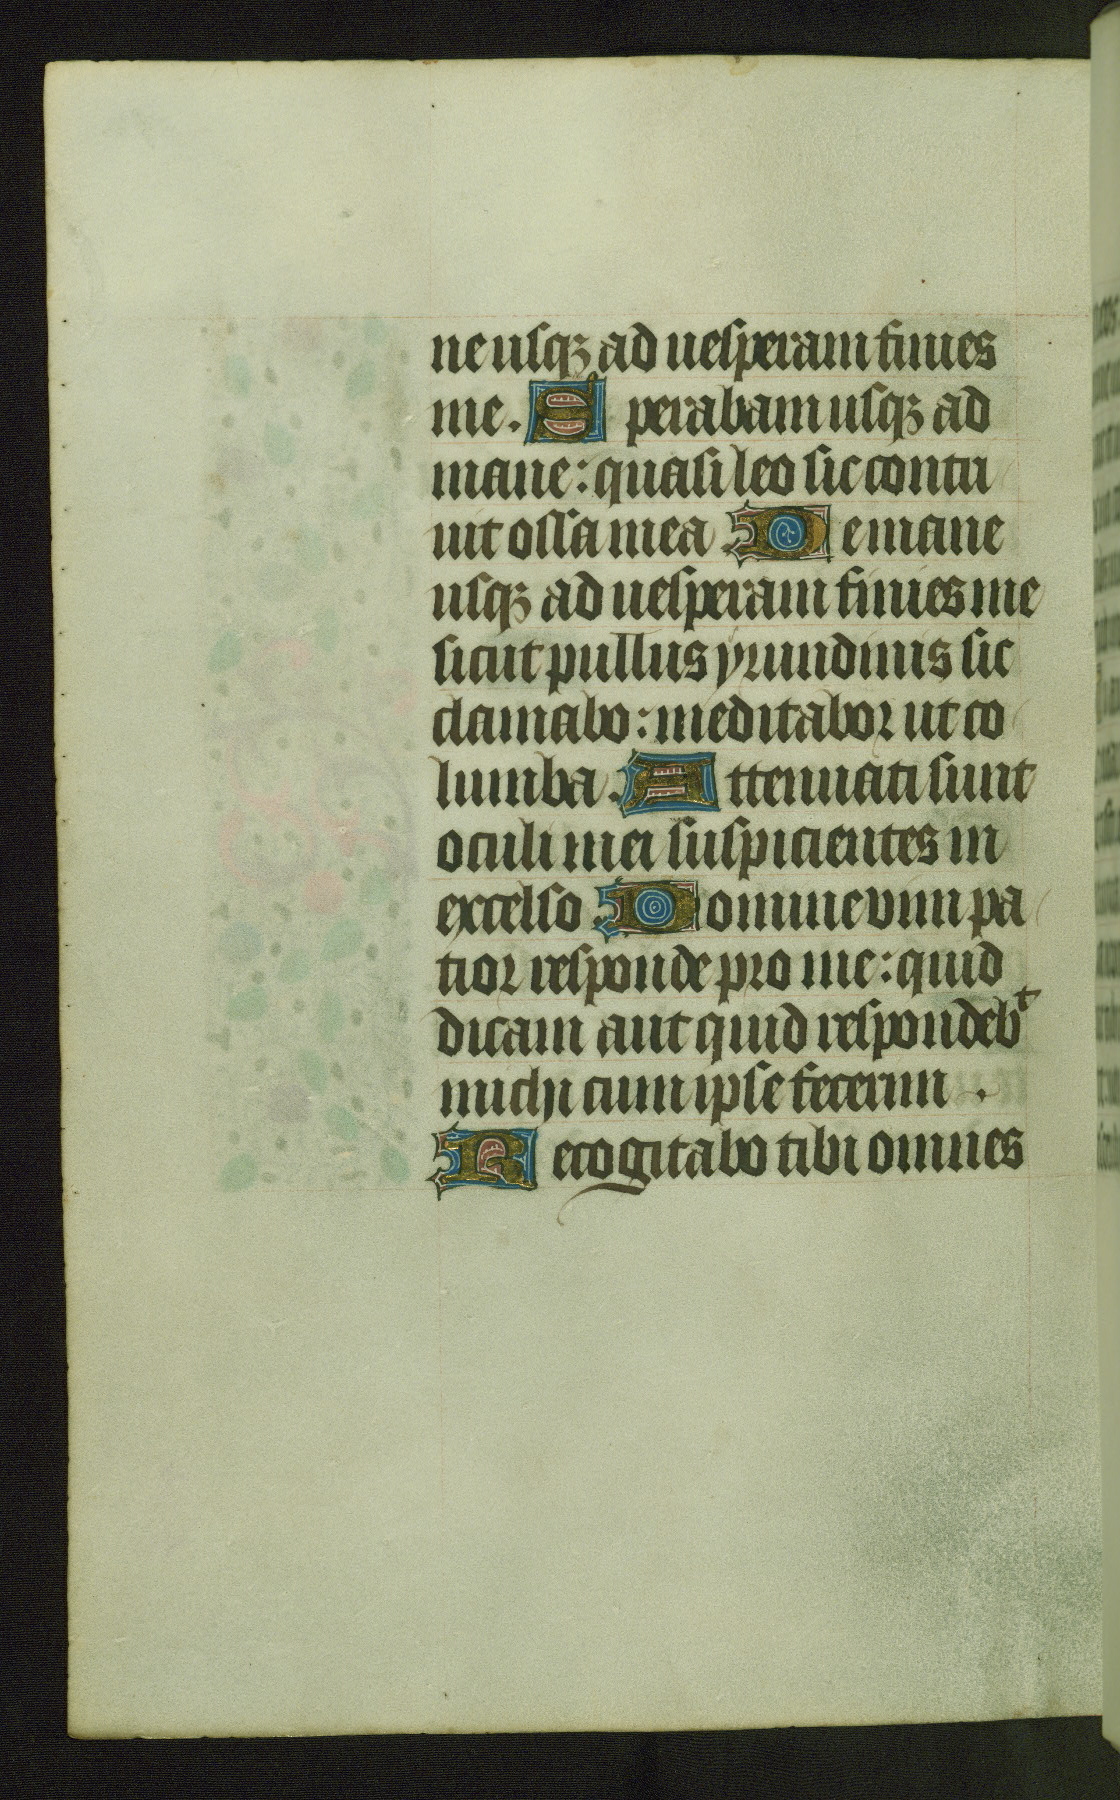 ne usqꝫ ad uesperam finies
me. Sperabam usqꝫ ad
mane: quasi leo sic contri
uit ossa mea De mane
usqꝫ ad uesperam finies me
sicut pullus yrundinis sic
clamabo: meditabor ut co
lumba. Attenuati sunt
oculi mei suspicientes in
excelso Domine vim pa
tior responde pro me: quid
dicam aut quid respondebᵗ
michi cum ipse fecerim .
Recogitabo tibi omnes